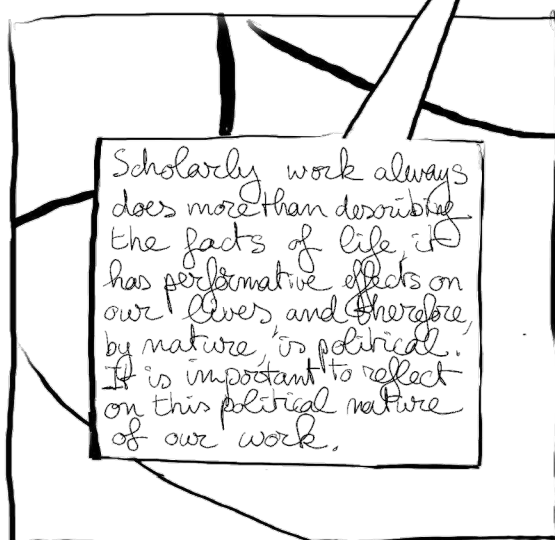 Scholarly work always
does more than describing
the facts of life, it
has performative effects on
our lives and therefore,
by nature, is political.
It is important to reflect
on this political nature
of our work.